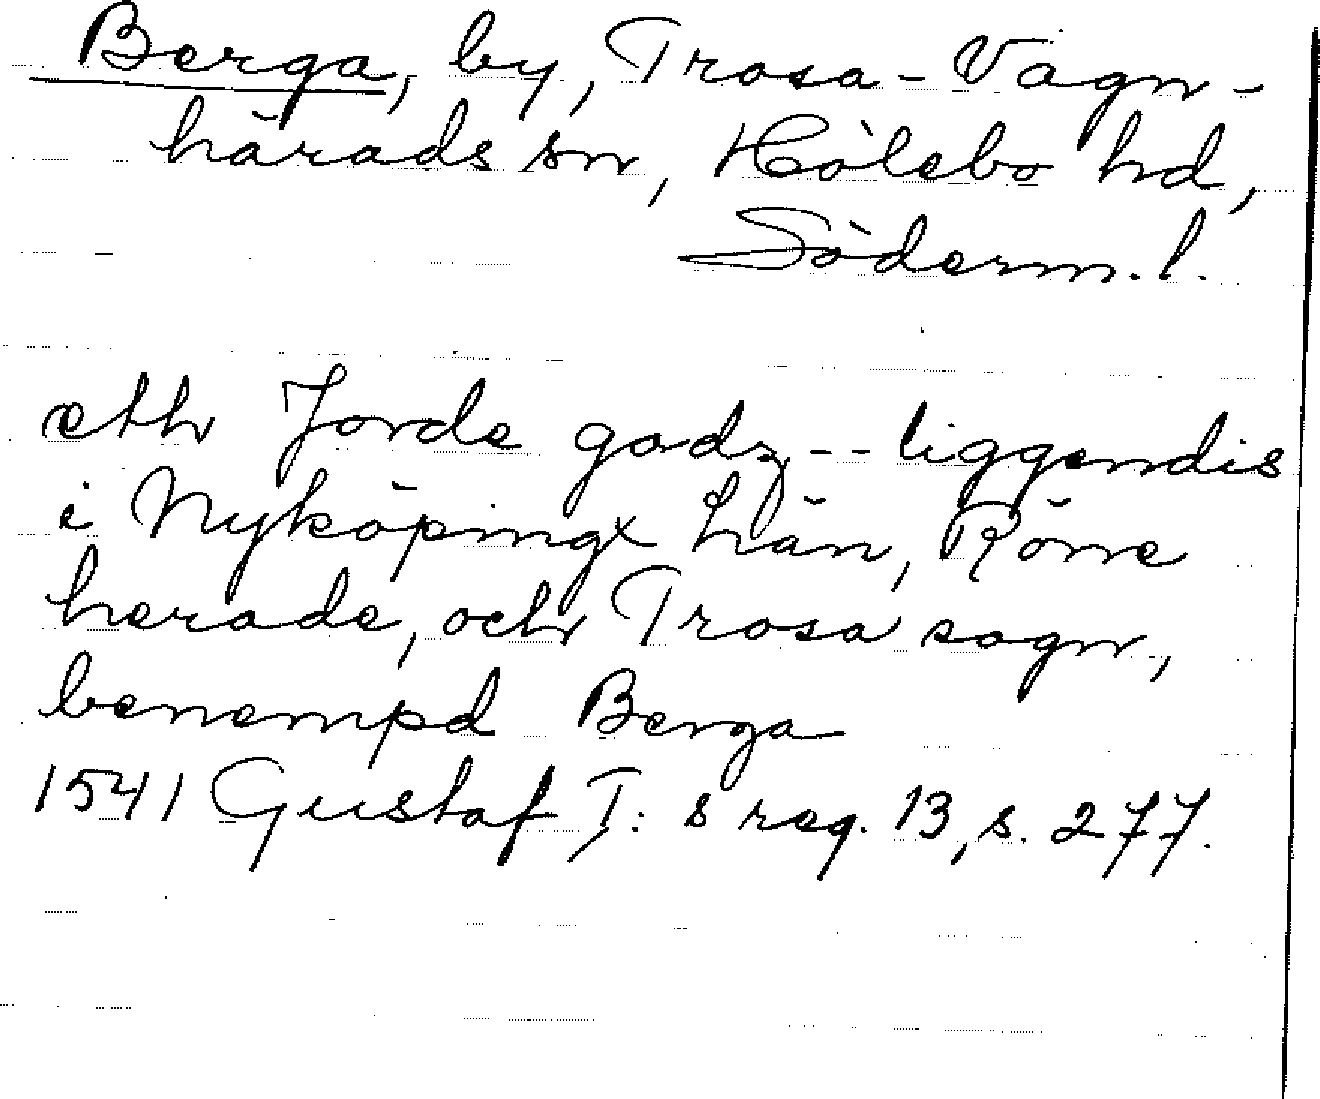 Berga, by, Trosa-Vagn-
härads sn, Hölebo hd,
Söderm.l.
eth Jorde godz -- liggendis
i Nyköpingx län, Röne
herade, och Trosa sogn,
benempd Berga
1541 Gustaf I:s reg. 13, s. 277.